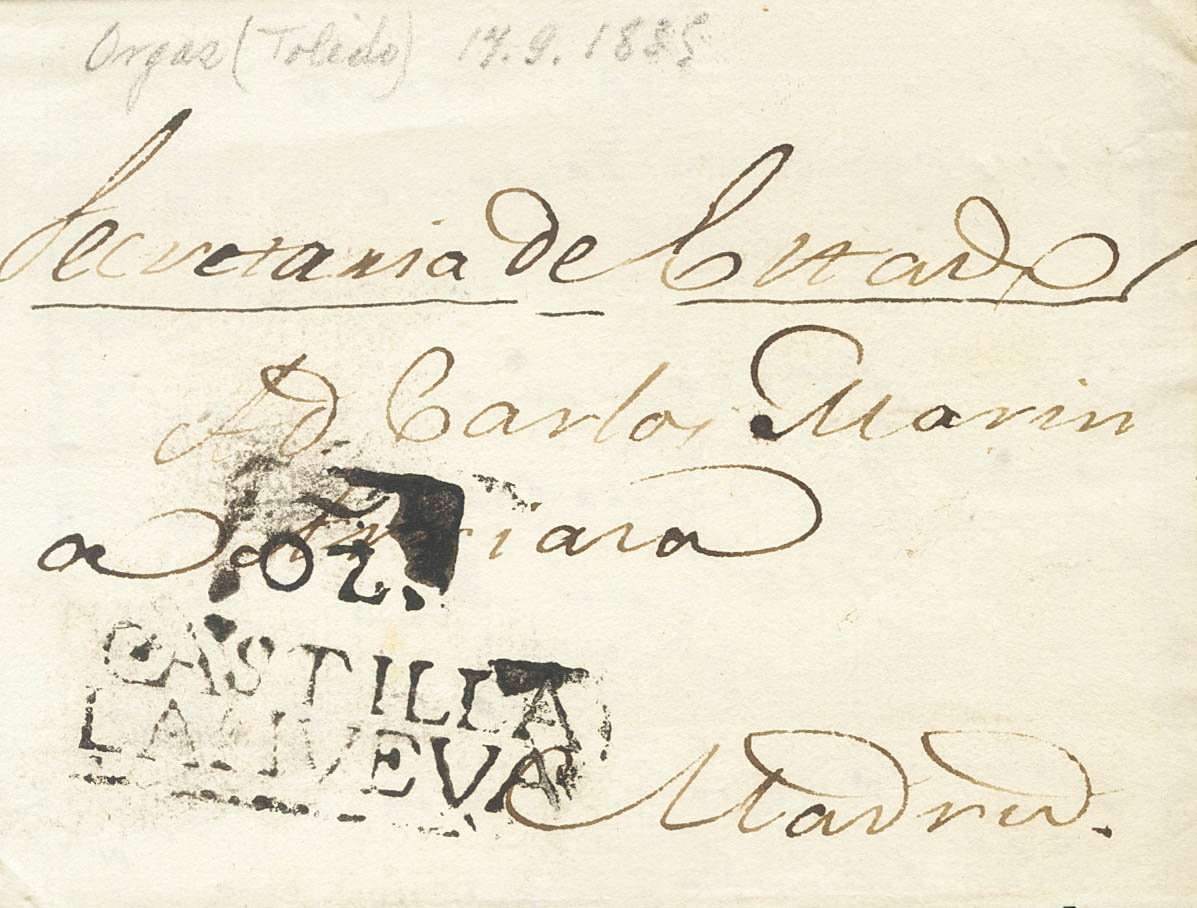 Orgaz (Toledo) 17.9.1835
Secretaria de Estado
A D. Carlos Marin
a
OZ.
CASTILLA
LA NUEVA
Madrid.